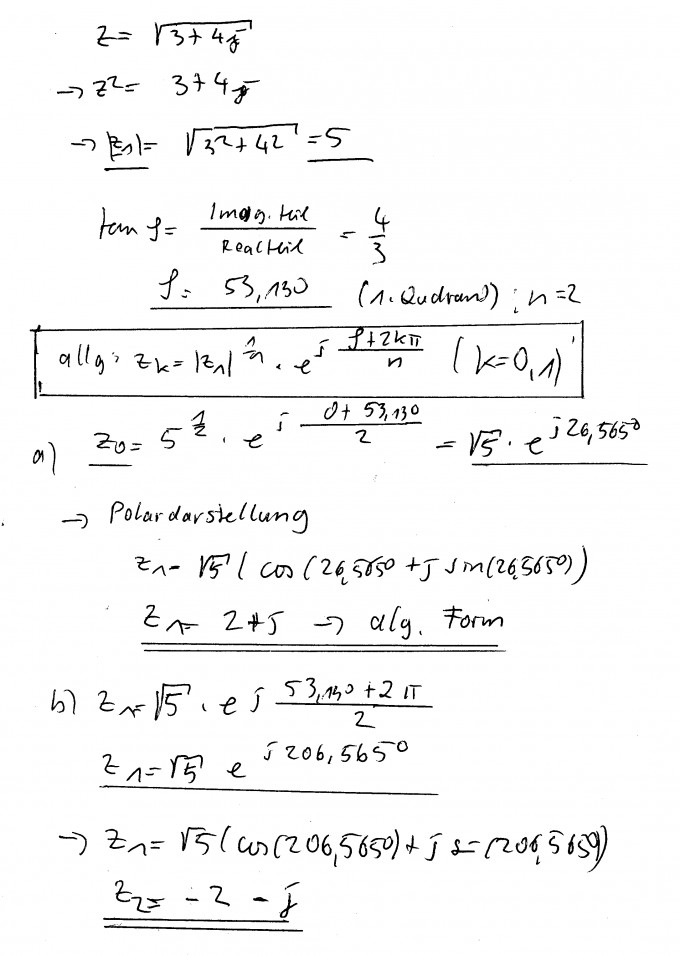 z = √(3+4j)
→ z² = 3+4j
→ |z1| = √(3²+4²) = 5
tan φ = Imag.teil / Realteil = 4/3
φ = 53,13° (1. Qudrand) ; n=2
allg: zk = |z1|^(1/n) · e^(j (φ+2kπ)/n) (k=0,1)
a) z0 = 5^(1/2) · e^(j (0+53,13°)/2) = √5 · e^(j26,565°)
→ Polardarstellung
z1 = √5 ( cos (26,565° + j sin(26,565°))
z1 = 2+j → alg. Form
b) z1 = √5 · e^(j (53,13°+2π)/2)
z1 = √5 e^(j206,565°)
→ z1 = √5 (cos(206,565°) + j s (206,565°))
z2 = -2 - j